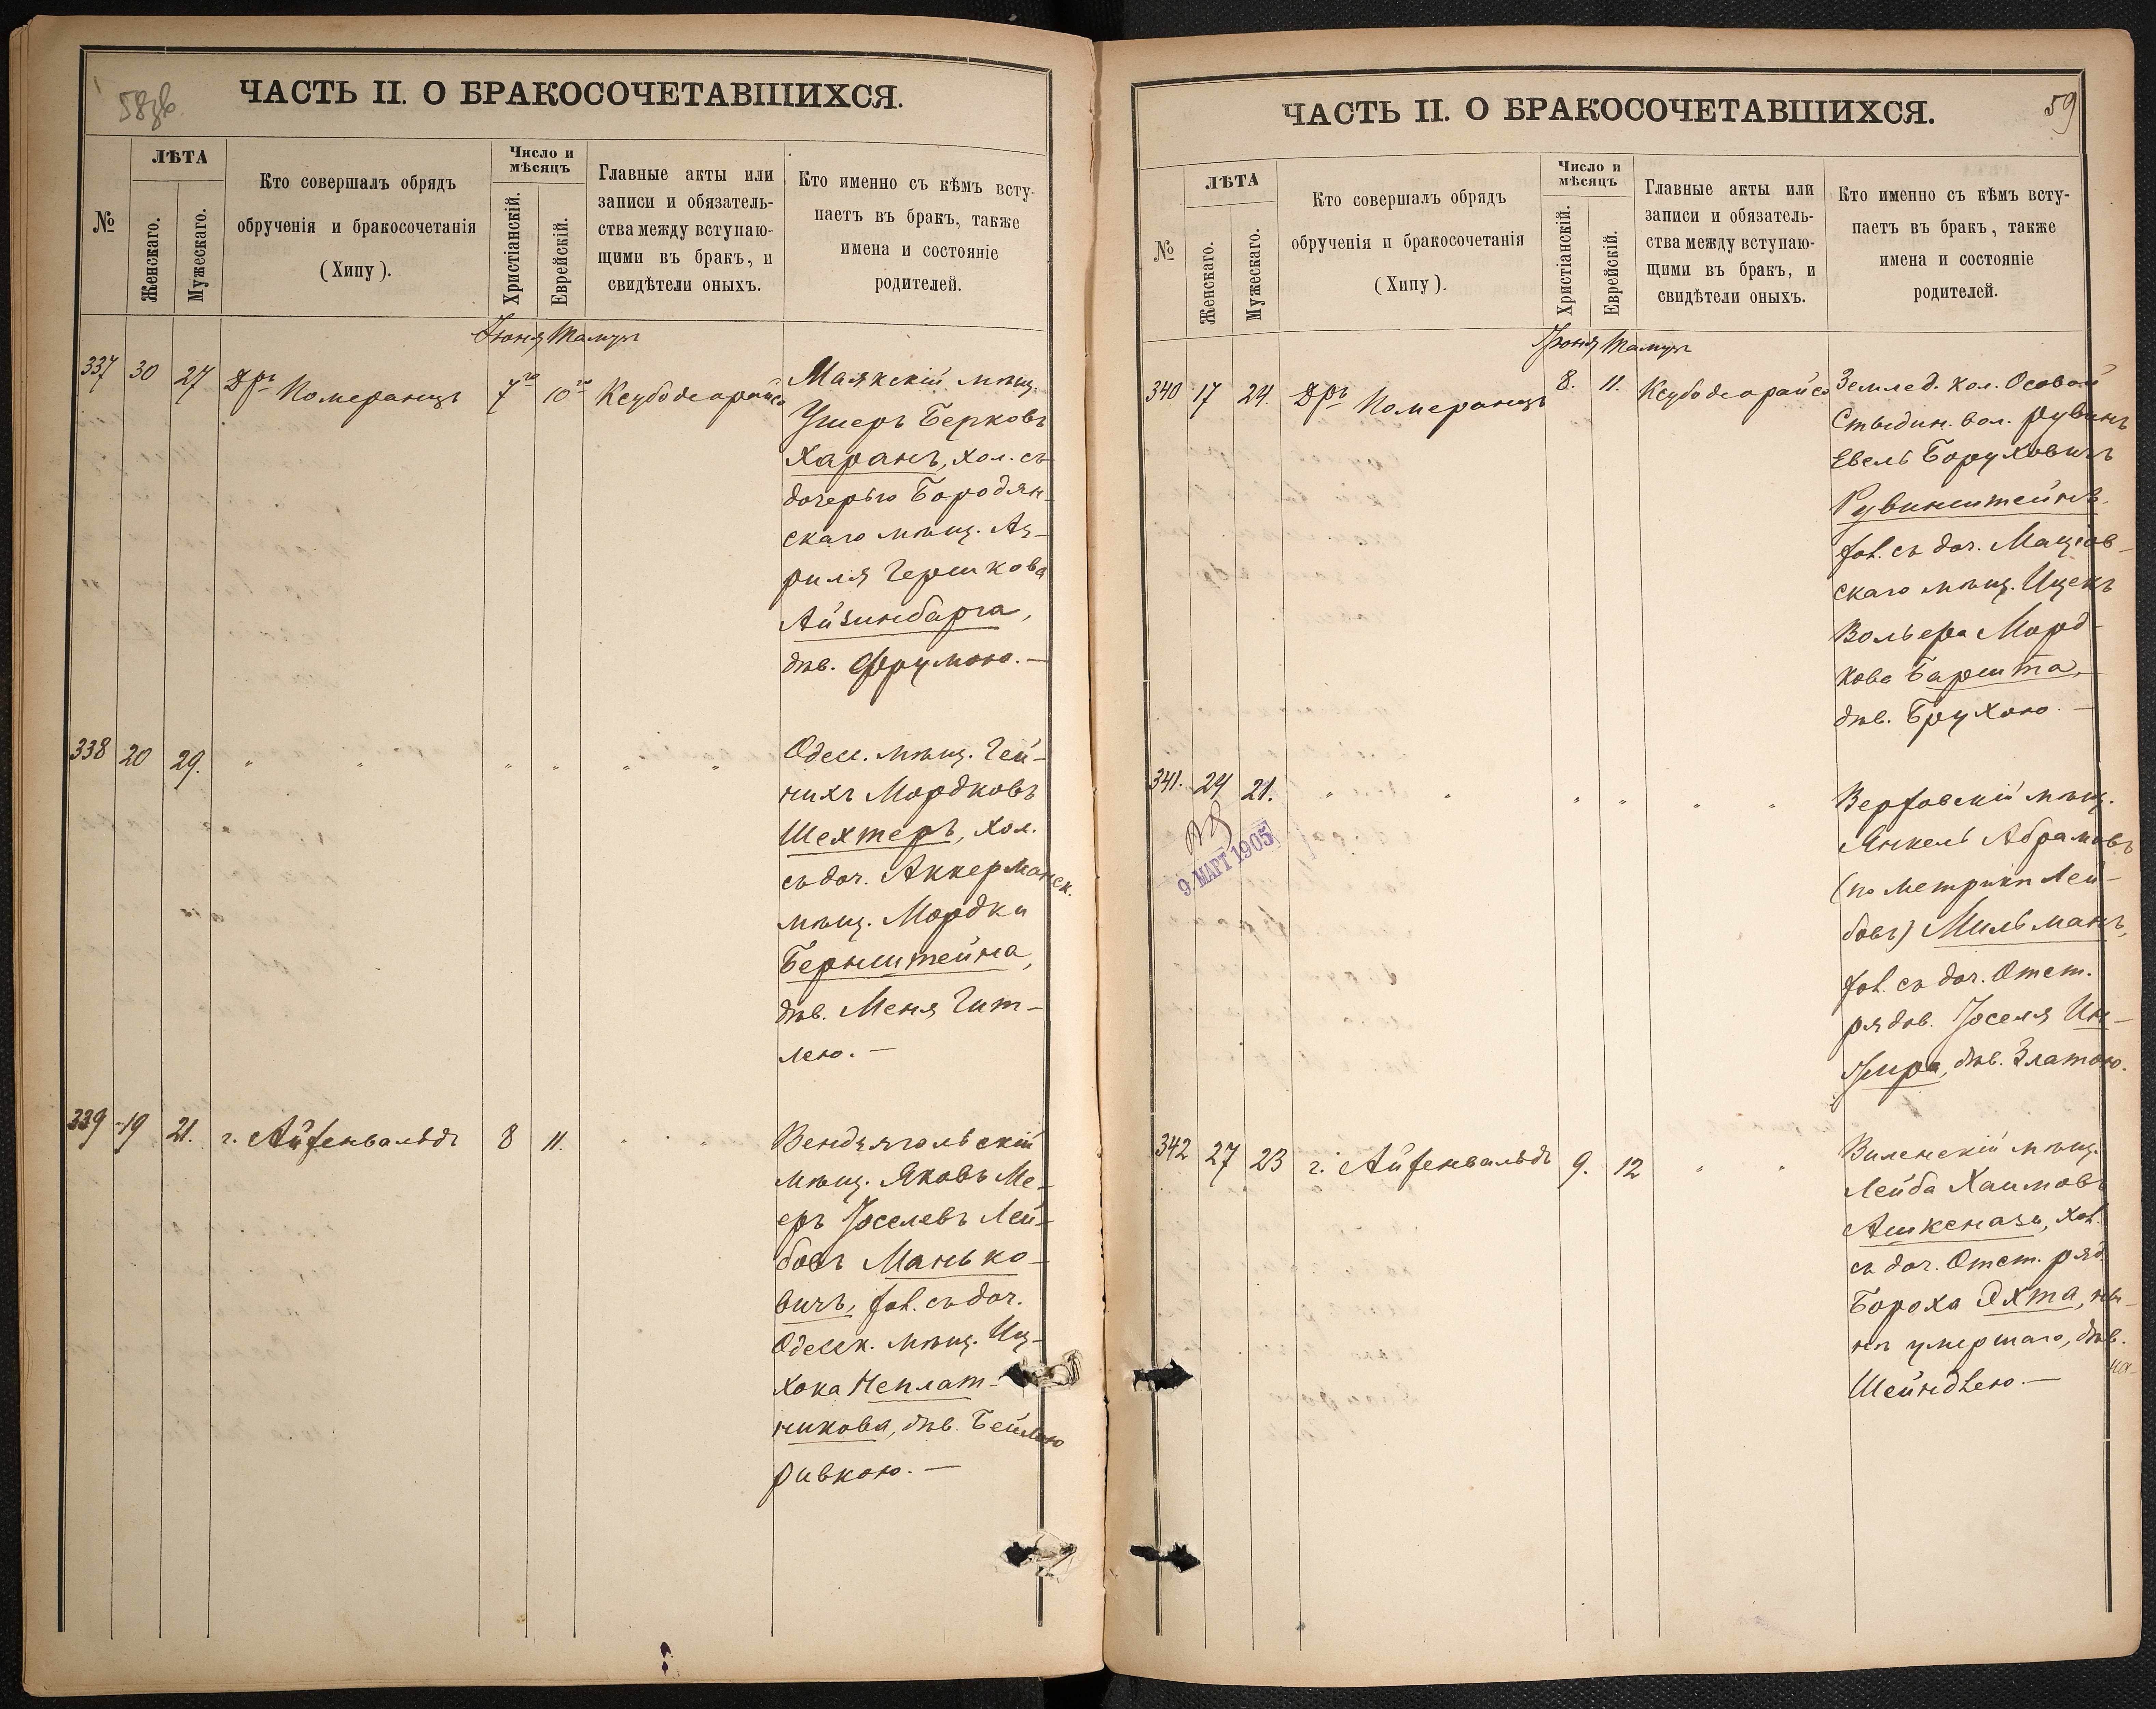 58 об.
ЧАСТЬ II. О БРАКОСОЧЕТАВШИХСЯ.
№
ЛѢТА
Женскаго.
Мужескаго.
Кто совершалъ обрядъ
обрученія и бракосочетанія
(Хипу).
Число и
мѣсяцъ
Христіанскій.
Еврейскій.
Главные акты или
записи и обязатель-
ства между вступаю-
щими въ бракъ, и
свидѣтели оныхъ.
Кто именно съ кѣмъ всту-
паетъ въ бракъ, также
имена и состояніе
родителей.
Іюня Тамуз
337 30 27 Др. Померанцъ 7го 10го Ксубо деорайсо
Маякскій мѣщ.
Ушеръ Берковъ
Харанъ, хол. съ
дочерью Бородян-
скаго мѣщ. Аз-
риля Гершкова
Айзинбарга,
дѣв. Фрумою. —
338 20 29. " " " " " "
Одесс. мѣщ. Гей-
нихъ Мордковъ
Шехтеръ, хол.
съ доч. Аккерманск.
мѣщ. Мордки
Бернштейна,
дѣв. Меня Гит-
лею. —
339 19 21. г. Айзенвальдъ 8 11. " "
Вендзягольскій
мѣщ. Яковъ Ме-
еръ Іоселевъ Лей-
бовъ Манько-
вичъ, хол. съ доч.
Одесск. мѣщ. Иц-
хока Неплат-
никова, дѣв. Бейлею
Ривкою. —
59
ЧАСТЬ II. О БРАКОСОЧЕТАВШИХСЯ.
№
ЛѢТА
Женскаго.
Мужескаго.
Кто совершалъ обрядъ
обрученія и бракосочетанія
(Хипу).
Число и
мѣсяцъ
Христіанскій.
Еврейскій.
Главные акты или
записи и обязатель-
ства между вступаю-
щими въ бракъ, и
свидѣтели оныхъ.
Кто именно съ кѣмъ всту-
паетъ въ бракъ, также
имена и состояніе
родителей.
Іюня Тамуз
340 17 24. Др. Померанцъ 8. 11. Ксубо деорайсо
Землед. кол. Осовой
Стыдин. вол. Рувинъ
Евель Боруховичъ
Рувинштейнъ,
хол. съ доч. Маціов-
скаго мѣщ. Ицекъ
Вольфа Морд-
кова Баршта,
дѣв. Брухою. —
341. 24 21. " " " " " "
9 МАРТ 1905
мѣщ.
Янкель Абрамовъ
(по метрикѣ Лей-
бовъ) Мильманъ,
хол. съ доч. Отст.
рядов. Іоселя
дѣв. Златою.
342 27 23 г. Айзенвальдъ 9. 12 " "
Виленскій мѣщ.
Лейба Хаимовъ
Ашкеназъ, хол.
съ доч. Отст. ряд.
Бороха Эхта, ны-
нѣ умершаго, дѣв.
Шейндлею. —